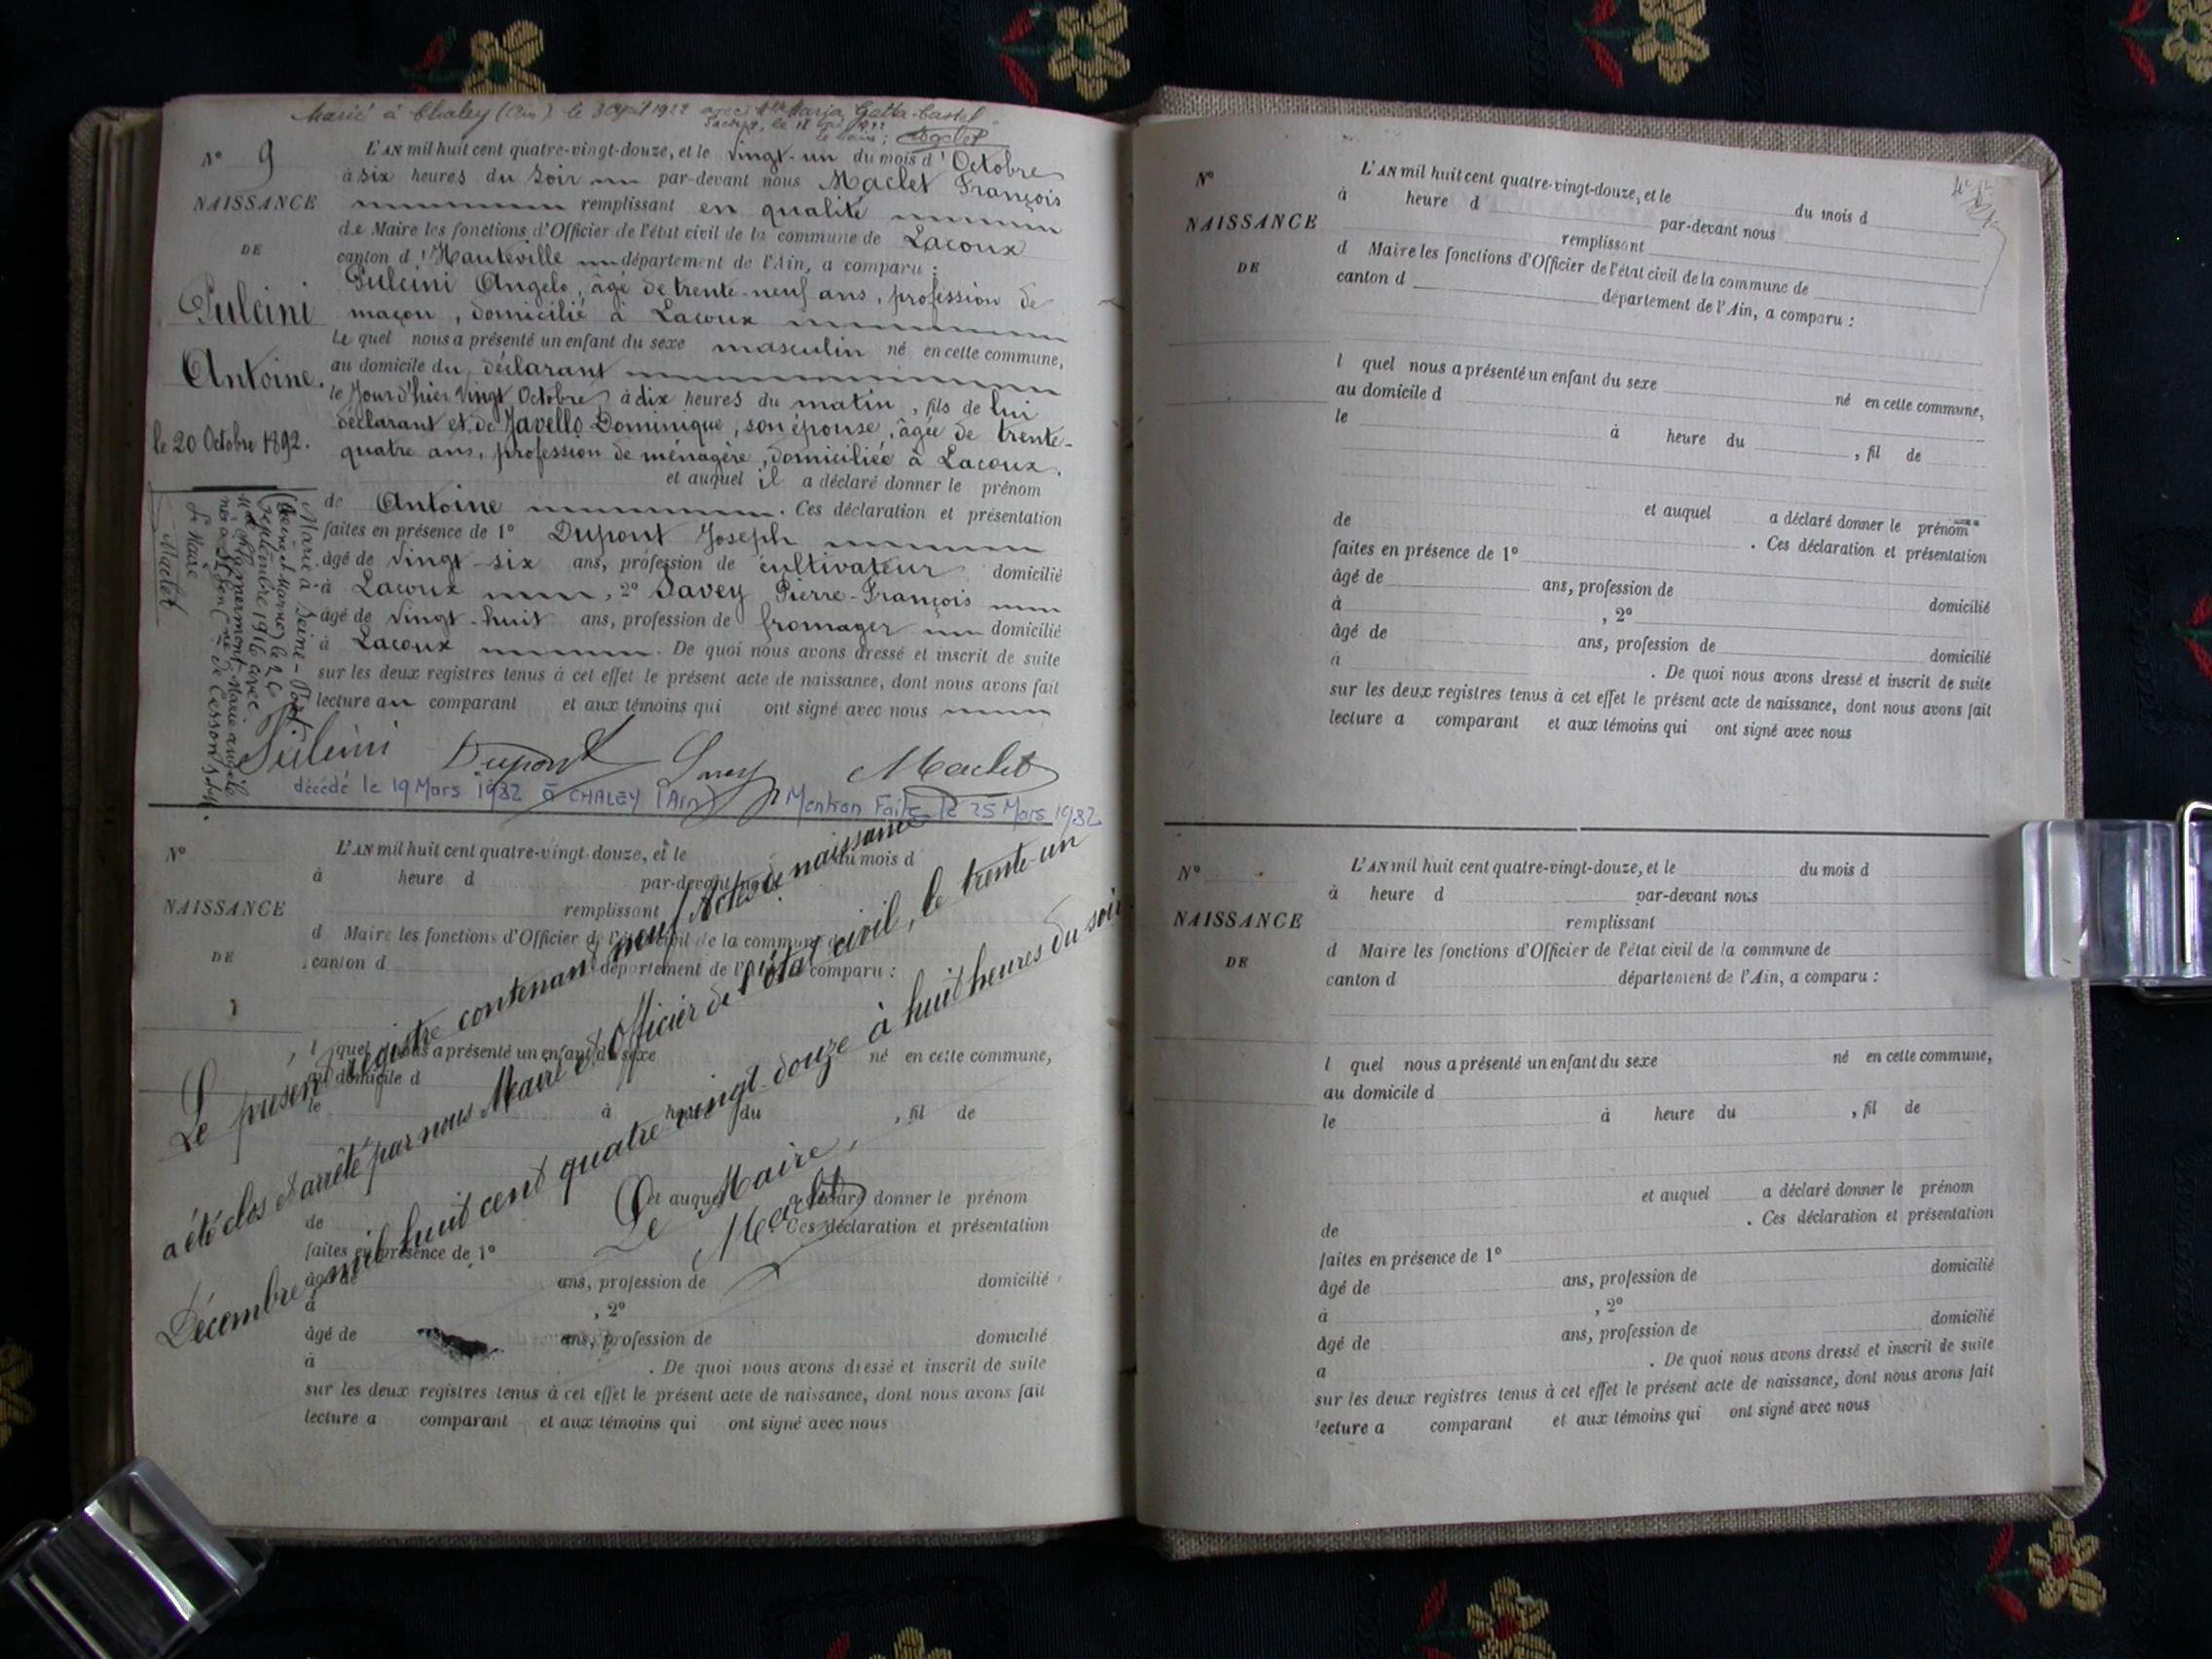 Marié à Chaley (Ain) le 3 1922 avec Maria Gatta-Castel
le 1922
le maire;
N° 9
NAISSANCE
DE
Pulcini
Antoine.
le 20 Octobre 1892.
L'AN mil huit cent quatre-vingt-douze, et le vingt-un du mois d'Octobre
à six heures du soir par-devant nous Maclet François
remplissant en qualité
de Maire les fonctions d'Officier de l'état civil de la commune de Lacoux
canton d'Hauteville département de l'Ain, a comparu :
Pulcini Angelo, âgé de trente-neuf ans, profession de
maçon, domicilié à Lacoux
Le quel nous a présenté un enfant du sexe masculin né en cette commune,
au domicile du déclarant
le Jourd'hier vingt Octobre à dix heures du matin, fils de lui
déclarant et de Javello Dominique, son épouse, âgée de trente-
quatre ans, profession de ménagère, domiciliée à Lacoux.
et auquel il a déclaré donner le prénom
de Antoine . Ces déclaration et présentation
faites en présence de 1° Dupont Joseph
âgé de vingt-six ans, profession de cultivateur domicilié
à Lacoux , 2° Savey Pierre-François
âgé de vingt-huit ans, profession de fromager domicilié
à Lacoux . De quoi nous avons dressé et inscrit de suite
sur les deux registres tenus à cet effet le présent acte de naissance, dont nous avons fait
lecture au comparant et aux témoins qui ont signé avec nous
Marié à Seine-Port
(Seine et Marne) le 26
septembre 1916 avec
Marie
née à de Cesson S.&M.
Le Maire
Maclet
Pulcini Dupont Savey Maclet
décédé le 19 Mars 1982 à CHALEY (Ain) Mention Faite le 25 Mars 1982
N°
NAISSANCE
DE
L'AN mil huit cent quatre-vingt-douze, et le du mois d
à heure d par-devant nous
remplissant
d Maire les fonctions d'Officier de l'état civil de la commune de
canton d département de l'Ain, a comparu :
l quel nous a présenté un enfant du sexe né en cette commune,
au domicile d
le à heure du , fil de
et auquel a déclaré donner le prénom
de . Ces déclaration et présentation
faites en présence de 1°
âgé de ans, profession de domicilié
à , 2°
âgé de ans, profession de domicilié
à . De quoi nous avons dressé et inscrit de suite
sur les deux registres tenus à cet effet le présent acte de naissance, dont nous avons fait
lecture a comparant et aux témoins qui ont signé avec nous
Le présent registre contenant neuf Actes de naissance
a été clos et arrêté par nous Maire et Officier de l'état civil, le trente-un
Décembre mil huit cent quatre-vingt-douze à huit heures du soir.
Le Maire,
Maclet
N°
NAISSANCE
DE
L'AN mil huit cent quatre-vingt-douze, et le du mois d
à heure d par-devant nous
remplissant
d Maire les fonctions d'Officier de l'état civil de la commune de
canton d département de l'Ain, a comparu :
l quel nous a présenté un enfant du sexe né en cette commune,
au domicile d
le à heure du , fil de
et auquel a déclaré donner le prénom
de . Ces déclaration et présentation
faites en présence de 1°
âgé de ans, profession de domicilié
à , 2°
âgé de ans, profession de domicilié
à . De quoi nous avons dressé et inscrit de suite
sur les deux registres tenus à cet effet le présent acte de naissance, dont nous avons fait
lecture a comparant et aux témoins qui ont signé avec nous
N°
NAISSANCE
DE
L'AN mil huit cent quatre-vingt-douze, et le du mois d
à heure d par-devant nous
remplissant
d Maire les fonctions d'Officier de l'état civil de la commune de
canton d département de l'Ain, a comparu :
l quel nous a présenté un enfant du sexe né en cette commune,
au domicile d
le à heure du , fil de
et auquel a déclaré donner le prénom
de . Ces déclaration et présentation
faites en présence de 1°
âgé de ans, profession de domicilié
à , 2°
âgé de ans, profession de domicilié
a . De quoi nous avons dressé et inscrit de suite
sur les deux registres tenus à cet effet le présent acte de naissance, dont nous avons fait
lecture a comparant et aux témoins qui ont signé avec nous